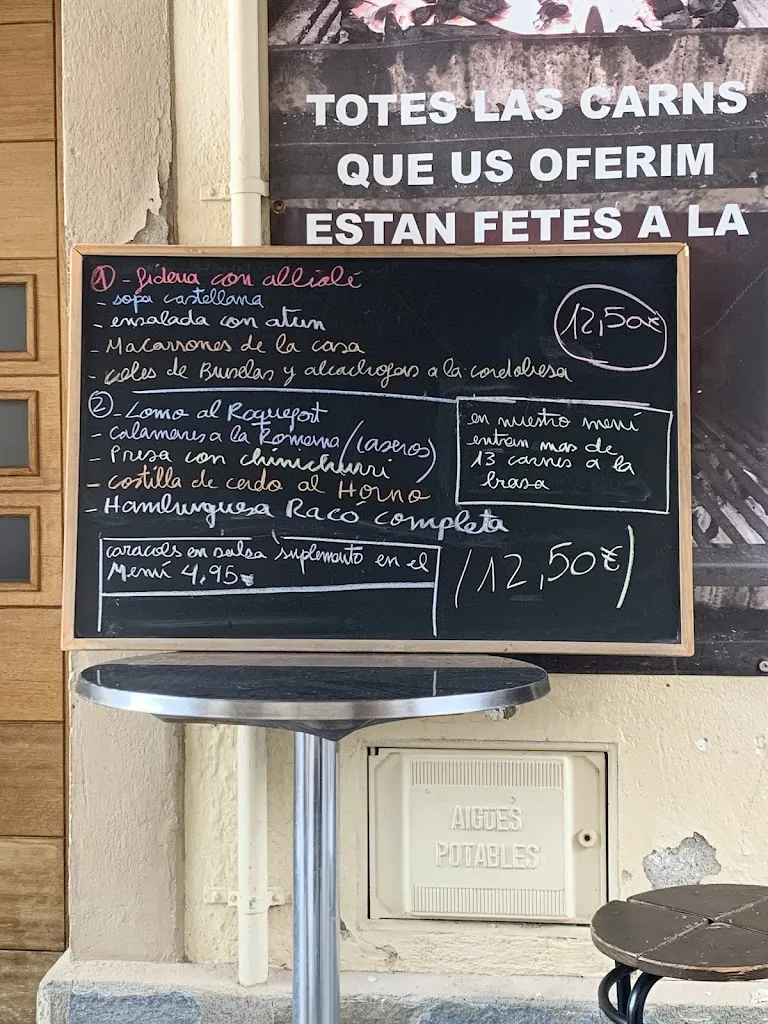 TOTES LAS CARNS
QUE US OFERIM
ESTAN FETES A LA
① - fideua con allioli
- sopa castellana
- ensalada con atun
- Macarrones de la casa
- coles de Bruselas y alcachofas a la cordobesa
12,50€
② - Lomo al Roquefort
- calamares a la Romana (caseros)
- Presa con chimichurri
- costilla de cerdo al Horno
- Hamburguesa Racó completa
en nuestro menú
entran mas de
13 carnes a la
brasa
caracols en salsa suplemento en el
Menú 4,95€
(12,50€)
AIGÜES
POTABLES